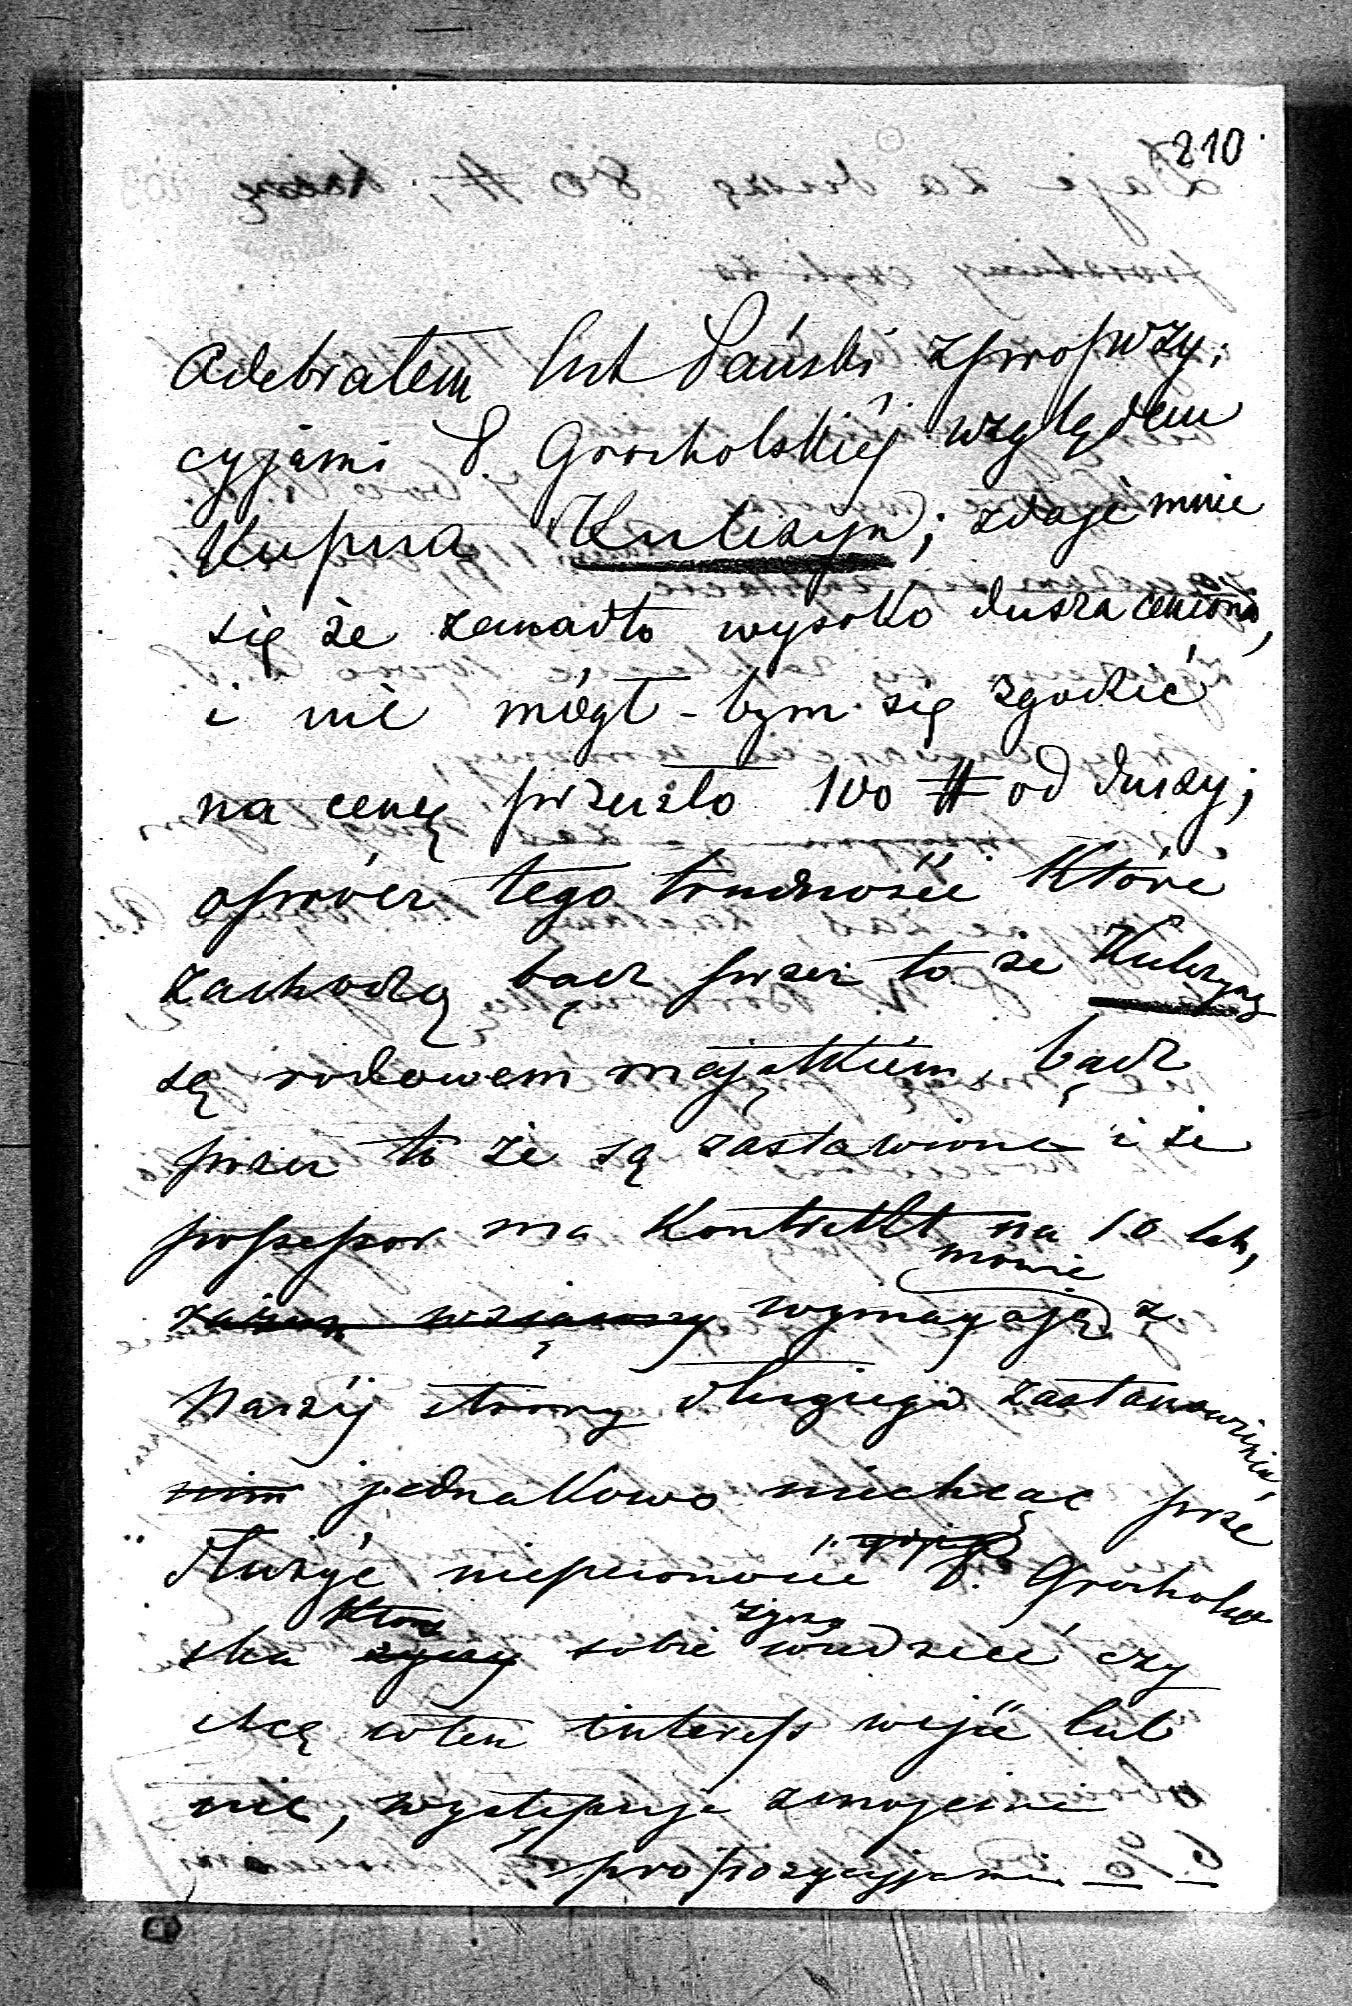 210
Odebrałem list Pański z propozy:
cyjami P. Grocholskiéj względem
Kupna Kuliszyn; zdaje mnie
się że zanadto wysoko dusza ceniona,
i nie mógł-bym się zgodzić
na cenę przeszło 100 # od duszy;
oprócz tego trudności które
zachodzą bądź przez to że Kuliszyny
są rodowem majątkiem, bądź
przez to że są zastawione i że
possessor ma Kontrakt na 10 lat,
mowie
wziąwszy wymagają z
naszéj strony długiego zastanowienia,
nim jednakowo niechcąc prze
dłużyć niepewności P. Grocholsk
ska która życzy sobie życzą wiedzieć czy
chcę w ten interess wejść lub
nie, występuje z mojemi
propozycyjami